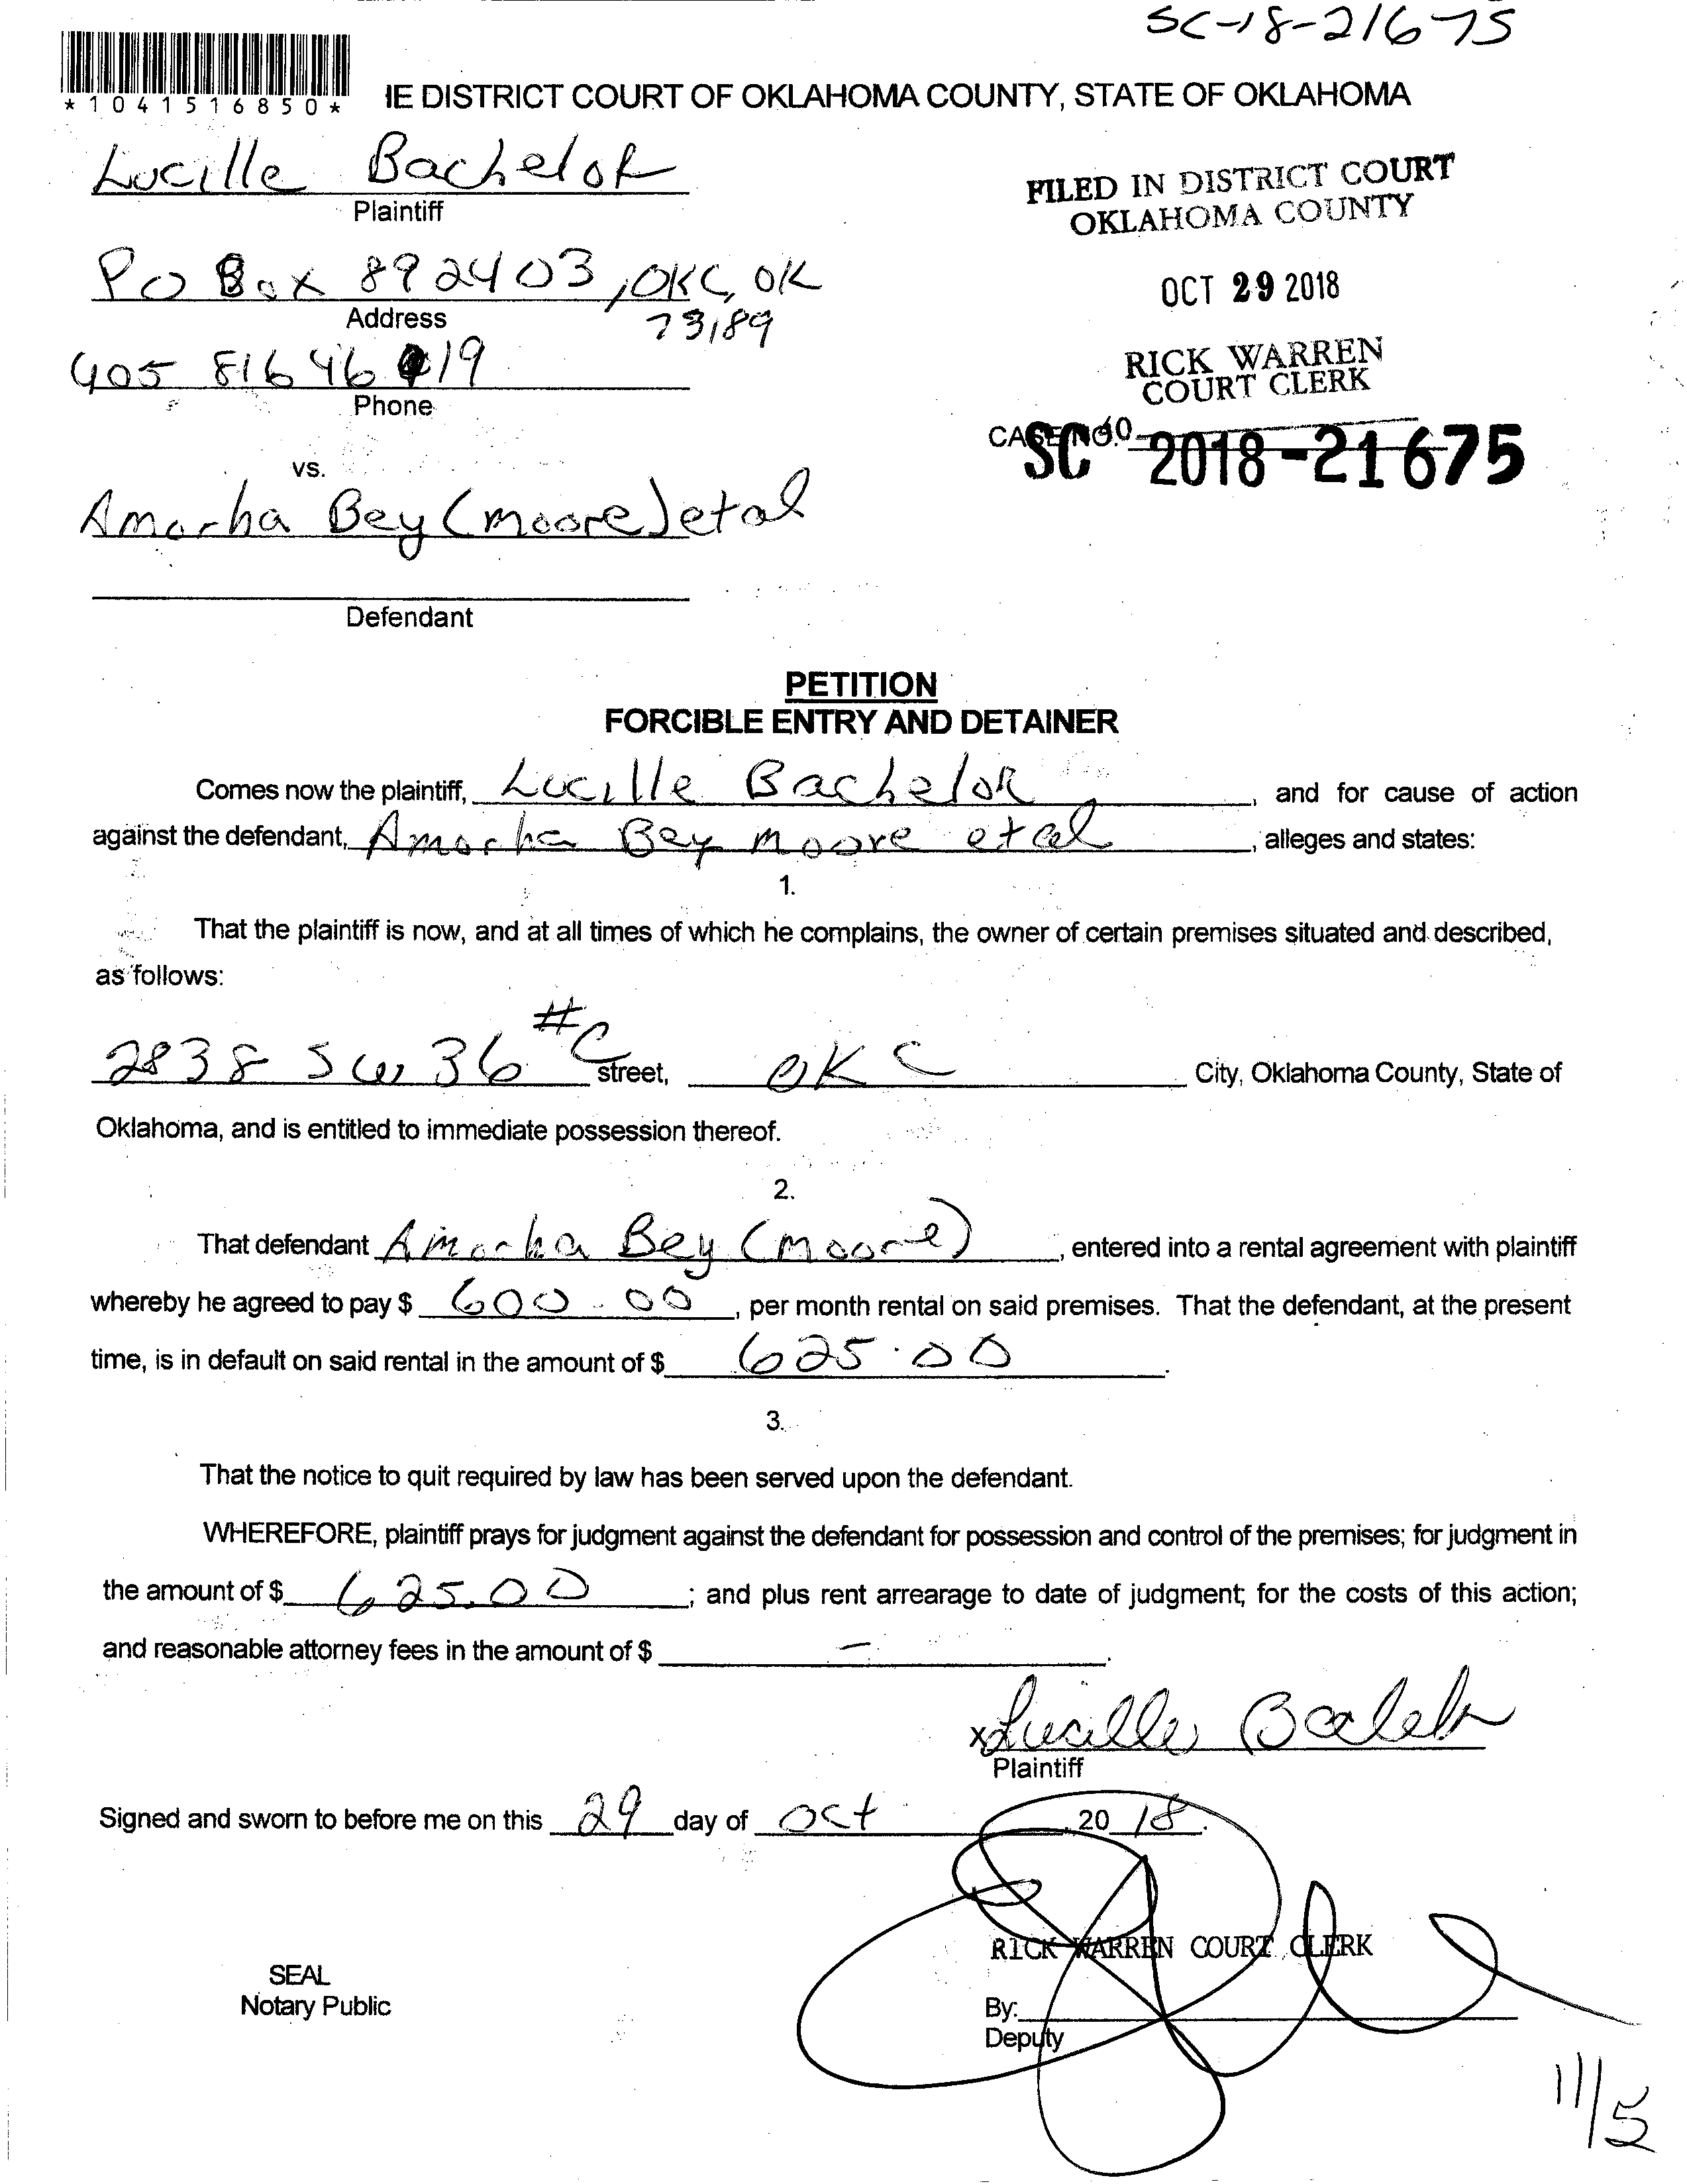 SC-18-21675
*1041516850*
IE DISTRICT COURT OF OKLAHOMA COUNTY, STATE OF OKLAHOMA
Lucille Bachelor
Plaintiff
PO Box 892403, OKC, OK
73189
Address
405 8164619
Phone
FILED IN DISTRICT COURT
OKLAHOMA COUNTY
OCT 29 2018
RICK WARREN
COURT CLERK
CASE NO.
SC 2018-21675
vs.
Amorha Bey (Moore) etal
Defendant
PETITION
FORCIBLE ENTRY AND DETAINER
Comes now the plaintiff, Lucille Bachelor, and for cause of action
against the defendant, Amorha Bey Moore etal, alleges and states:
1.
That the plaintiff is now, and at all times of which he complains, the owner of certain premises situated and described,
as follows:
2838 SW 36 #C street, OKC City, Oklahoma County, State of
Oklahoma, and is entitled to immediate possession thereof.
2.
That defendant Amorha Bey (Moore), entered into a rental agreement with plaintiff
whereby he agreed to pay $ 600.00, per month rental on said premises. That the defendant, at the present
time, is in default on said rental in the amount of $ 625.00.
3.
That the notice to quit required by law has been served upon the defendant.
WHEREFORE, plaintiff prays for judgment against the defendant for possession and control of the premises; for judgment in
the amount of $ 625.00; and plus rent arrearage to date of judgment; for the costs of this action;
and reasonable attorney fees in the amount of $ —.
x Lucille Bachelor
Plaintiff
Signed and sworn to before me on this 29 day of Oct, 20 18.
RICK WARREN COURT CLERK
SEAL
Notary Public
By:
Deputy
11/5